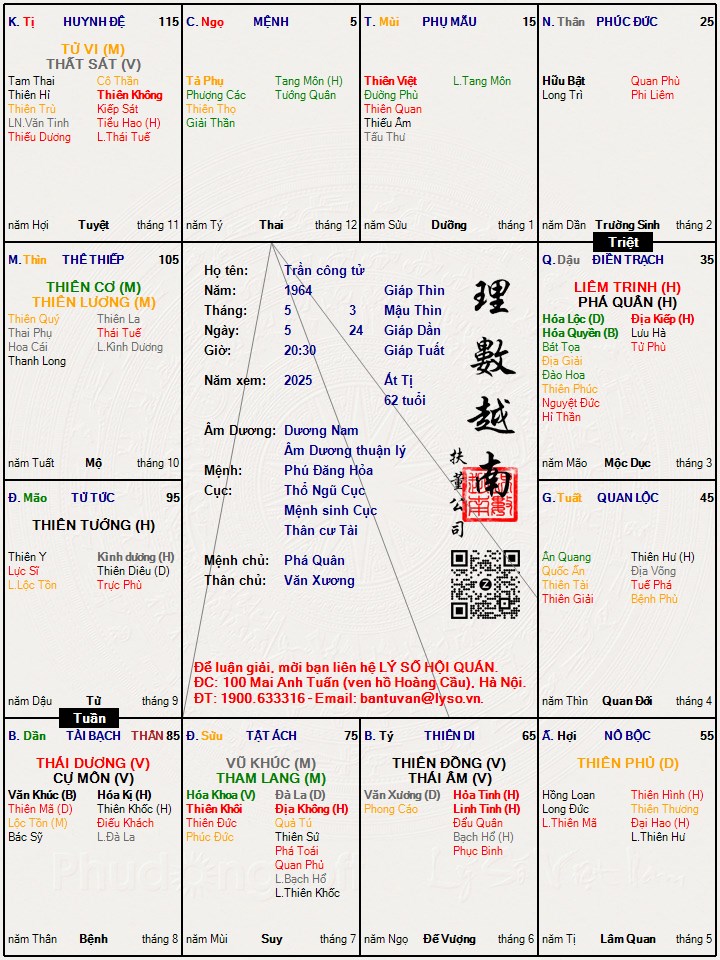 K. Tị HUYNH ĐỆ 115
TỬ VI (M)
THẤT SÁT (V)
Tam Thai Cô Thần
Thiên Hỉ Thiên Không
Thiên Trù Kiếp Sát
LN.Văn Tinh Tiểu Hao (H)
Thiếu Dương L.Thái Tuế
năm Hợi Tuyệt tháng 11
C. Ngọ MỆNH 5
Tả Phụ Tang Môn (H)
Phượng Các Tướng Quân
Thiên Thọ
Giải Thần
năm Tý Thai tháng 12
T. Mùi PHỤ MẪU 15
Thiên Việt L.Tang Môn
Đường Phù
Thiên Quan
Thiếu Âm
Tấu Thư
năm Sửu Dưỡng tháng 1
N. Thân PHÚC ĐỨC 25
Hữu Bật Quan Phù
Long Trì Phi Liêm
năm Dần Trường Sinh tháng 2
Triệt
M. Thìn THÊ THIẾP 105
THIÊN CƠ (M)
THIÊN LƯƠNG (M)
Thiên Quý Thiên La
Thai Phụ Thái Tuế
Hoa Cái L.Kình Dương
Thanh Long
năm Tuất Mộ tháng 10
Họ tên: Trần công tử
Năm: 1964 Giáp Thìn
Tháng: 5 3 Mậu Thìn
Ngày: 5 24 Giáp Dần
Giờ: 20:30 Giáp Tuất
Năm xem: 2025 Ất Tị
62 tuổi
Âm Dương: Dương Nam
Âm Dương thuận lý
Mệnh: Phú Đăng Hỏa
Cục: Thổ Ngũ Cục
Mệnh sinh Cục
Thân cư Tài
Mệnh chủ: Phá Quân
Thân chủ: Văn Xương
理數越南
扶董公司
Z
Để luận giải, mời bạn liên hệ LÝ SỐ HỘI QUÁN.
ĐC: 100 Mai Anh Tuấn (ven hồ Hoàng Cầu), Hà Nội.
ĐT: 1900.633316 - Email: bantuvan@lyso.vn.
Q. Dậu ĐIỀN TRẠCH 35
LIÊM TRINH (H)
PHÁ QUÂN (H)
Hóa Lộc (D) Địa Kiếp (H)
Hóa Quyền (B) Lưu Hà
Bát Tọa Tử Phù
Địa Giải
Đào Hoa
Thiên Phúc
Nguyệt Đức
Hỉ Thần
năm Mão Mộc Dục tháng 3
Đ. Mão TỬ TỨC 95
THIÊN TƯỚNG (H)
Thiên Y Kình dương (H)
Lực Sĩ Thiên Diêu (D)
L.Lộc Tồn Trực Phù
năm Dậu Tử tháng 9
Tuần
G. Tuất QUAN LỘC 45
Ân Quang Thiên Hư (H)
Quốc Ấn Địa Võng
Thiên Tài Tuế Phá
Thiên Giải Bệnh Phù
năm Thìn Quan Đới tháng 4
B. Dần TÀI BẠCH THÂN 85
THÁI DƯƠNG (V)
CỰ MÔN (V)
Văn Khúc (B) Hóa Kị (H)
Thiên Mã (D) Thiên Khốc (H)
Lộc Tồn (M) Điếu Khách
Bác Sỹ L.Đà La
năm Thân Bệnh tháng 8
Đ. Sửu TẬT ÁCH 75
VŨ KHÚC (M)
THAM LANG (M)
Hóa Khoa (V) Đà La (D)
Thiên Khôi Địa Không (H)
Thiên Đức Quả Tú
Phúc Đức Thiên Sứ
Phá Toái
Quan Phủ
L.Bạch Hổ
L.Thiên Khốc
năm Mùi Suy tháng 7
B. Tý THIÊN DI 65
THIÊN ĐỒNG (V)
THÁI ÂM (V)
Văn Xương (D) Hỏa Tinh (H)
Phong Cáo Linh Tinh (H)
Đẩu Quân
Bạch Hổ (H)
Phục Binh
năm Ngọ Đế Vượng tháng 6
Ấ. Hợi NÔ BỘC 55
THIÊN PHỦ (D)
Hồng Loan Thiên Hình (H)
Long Đức Thiên Thương
L.Thiên Mã Đại Hao (H)
L.Thiên Hư
năm Tị Lâm Quan tháng 5